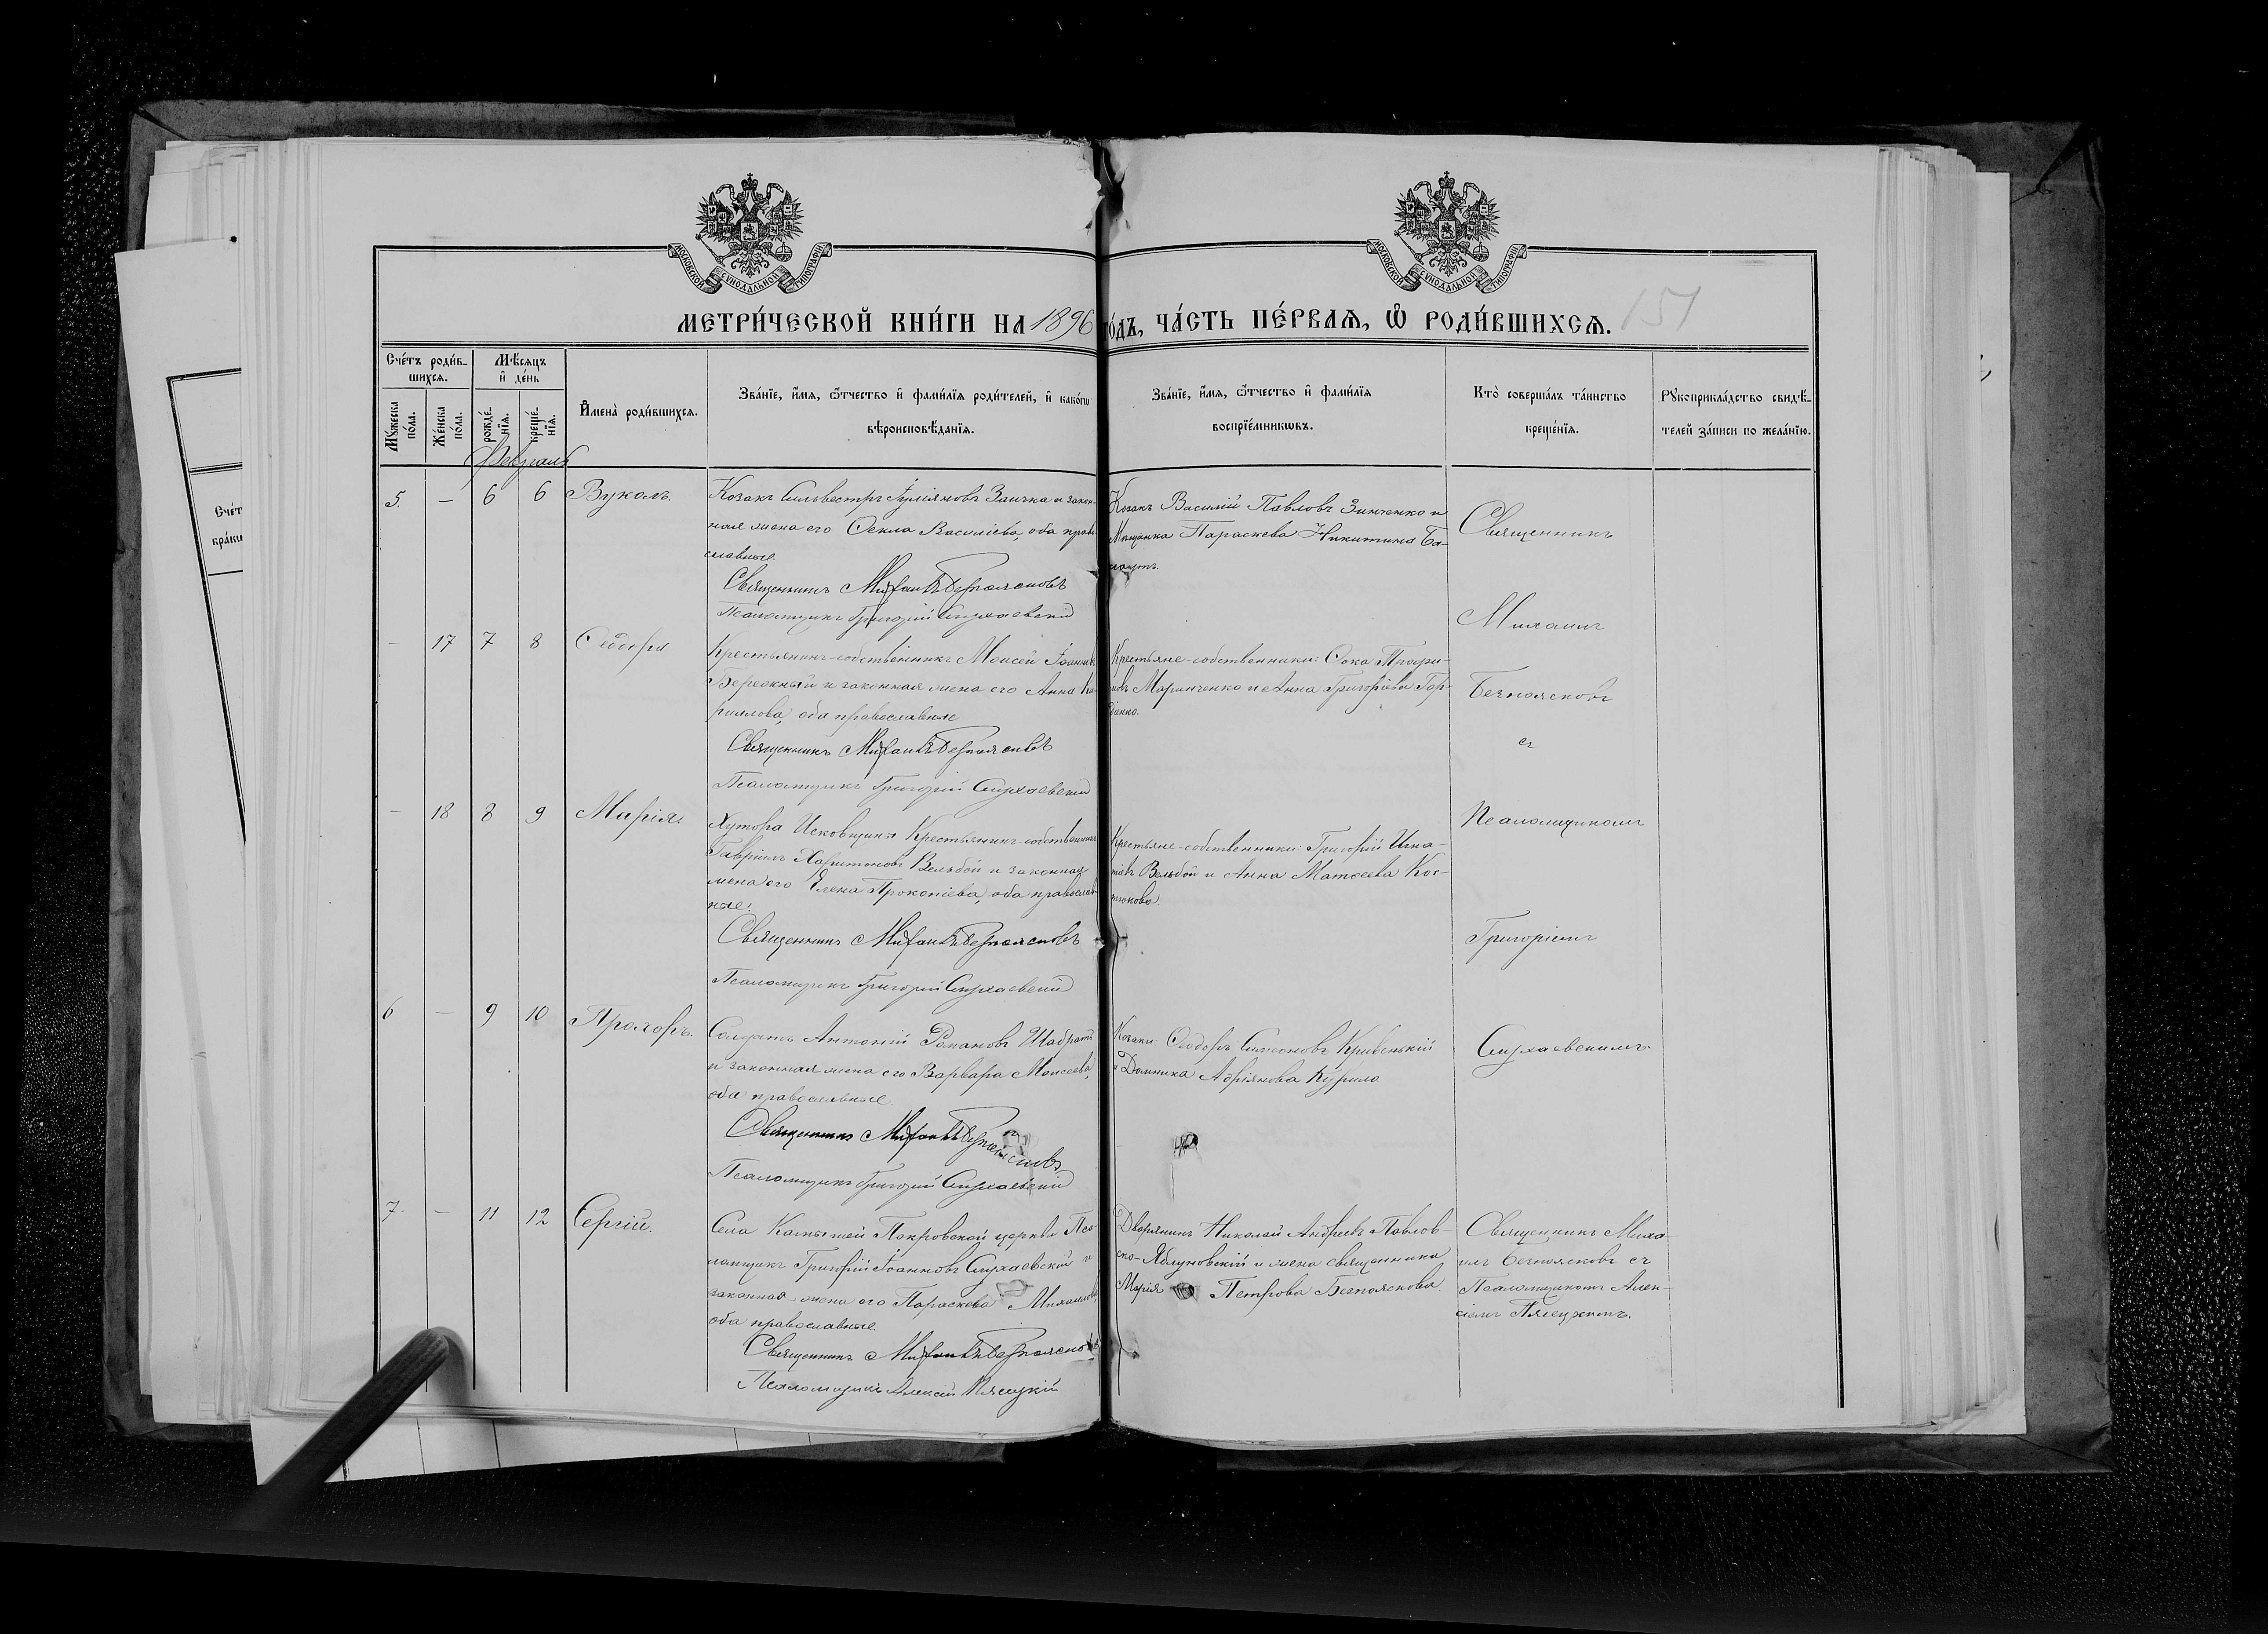 МОСКОВСКОЙ СѴНОДАЛЬНОЙ ТИПОГРАФІИ
МОСКОВСКОЙ СѴНОДАЛЬНОЙ ТИПОГРАФІИ
МЕТРИ́ЧЕСКОЙ КНИ́ГИ НА 1896 ГО́ДЪ, ЧА́СТЬ ПЕ́РВАѦ, Ѡ҆ РОДИ́ВШИХСѦ. 151
Сче́тъ роди́в-
шихсѧ.
Мꙋ́жеска по́ла.
Же́нска по́ла.
Мѣ́сѧцъ
и҆ де́нь
рожде́нїѧ.
креще́нїѧ.
И҆мена̀ роди́вшихсѧ.
Зва́нїе, и҆́мѧ, ѻ҆́тчество и҆ фами́лїѧ роди́телей, и҆ како́гѡ
вѣроисповѣ́данїѧ.
Зва́нїе, и҆́мѧ, ѻ҆́тчество и҆ фами́лїѧ
воспрїе́мникѡвъ.
Кто̀ соверша́лъ та́инство
креще́нїѧ.
Рꙋкоприкла́дство свидѣ́-
телей за́писи по жела́нїю.
Февраль
5. — 6 6 Вуколъ.
Козакъ Сильвестръ Іуліановъ Заичка и закон-
ная жена его Ѳекла Василіева, оба право
славные.
Священникъ Михаилъ Безпоясковъ
Псаломщикъ Григорій Слухаевскій
Козакъ Василій Павловъ Зинченко и
Мещанка Параскева Никитина Ба-
Священникъ
Михаилъ
Безпоясковъ
съ
Псаломщикомъ
Григоріемъ
Слухаевскимъ
— 17 7 8 Ѳеодора
Крестьянинъ-собственникъ Моисей Іоанновъ
Бережный и законная жена его Анна Ки
риллова, оба православные
Священникъ Михаилъ Безпоясковъ
Псаломщикъ Григорій Слухаевскій
Крестьяне-собственники: Ѳока Трофи-
мовъ Маринченко и Анна Григоріева Гор-
діенко.
— 18 8 9 Марія
Хутора Исковщины Крестьянинъ-собственникъ
Гавріилъ Харитоновъ Вельбой и законная
жена его Елена Прокопіева, оба православ
ные.
Священникъ Михаилъ Безпоясковъ
Псаломщикъ Григорій Слухаевскій
Крестьяне-собственники: Григорій Игна-
тіевъ Вельбой и Анна Матѳеева Кос-
6 — 9 10 Прохоръ.
Солдатъ Антоній Романовъ Шабратъ
и законная жена его Варвара Моисеева,
оба православные.
Священникъ Михаилъ Безпоясковъ
Псаломщикъ Григорій Слухаевскій
Козаки: Ѳеодоръ Симоновъ Кривенькій
и Домника Адріянова Курило
7. — 11 12 Сергій.
Села Камышей Покровской церкви Пса-
ломщикъ Григорій Іоанновъ Слухаевскій и
законная жена его Параскева Михаилова,
оба православные.
Священникъ Михаилъ Безпоясковъ
Псаломщикъ Алексій Пясецкій
Дворянинъ Николай Андреевъ Павлов-
ско-Яблуновскій и жена священника
Марія Петрова Безпояскова
Священникъ Миха-
илъ Безпоясковъ съ
Псаломщикомъ Алек-
сіемъ Пясецкимъ.